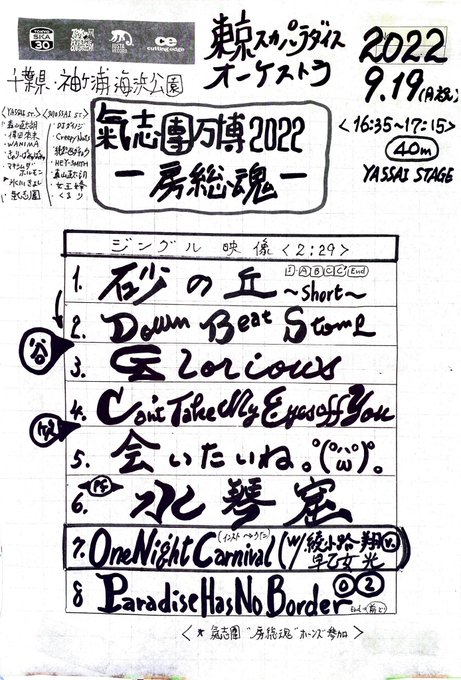 TOKYO SKA 30
JUSTA RECORD
cutting edge
東京スカパラダイス
オーケストラ
2022
9.19(月・祝)
千葉県・袖ケ浦海浜公園
<16:35~17:15>
40m
YASSAI STAGE
氣志團万博2022
ー房総魂ー
<YASSAI ST.>
森山直太朗
WANIMA
マキシマム ザ ホルモン
氣志團
<MOSSAI ST.>
Creepy Nuts
HEY-SMITH
女王蜂
くるり
ジングル 映像<2:29>
1. 砂の丘 ~Short~
I A B C C' End
2. Down Beat Stomp
谷
3. Glorious
4. Can't Take My Eyes off You
5. 会いたいね。゜(゜´ω`゜)゜。
6. 水琴窟
7. One Night Carnival (w/綾小路 翔 Vo. 早乙女 光)
8 Paradise Has No Border
<★ 氣志團"房総魂"ホーンズ参加>